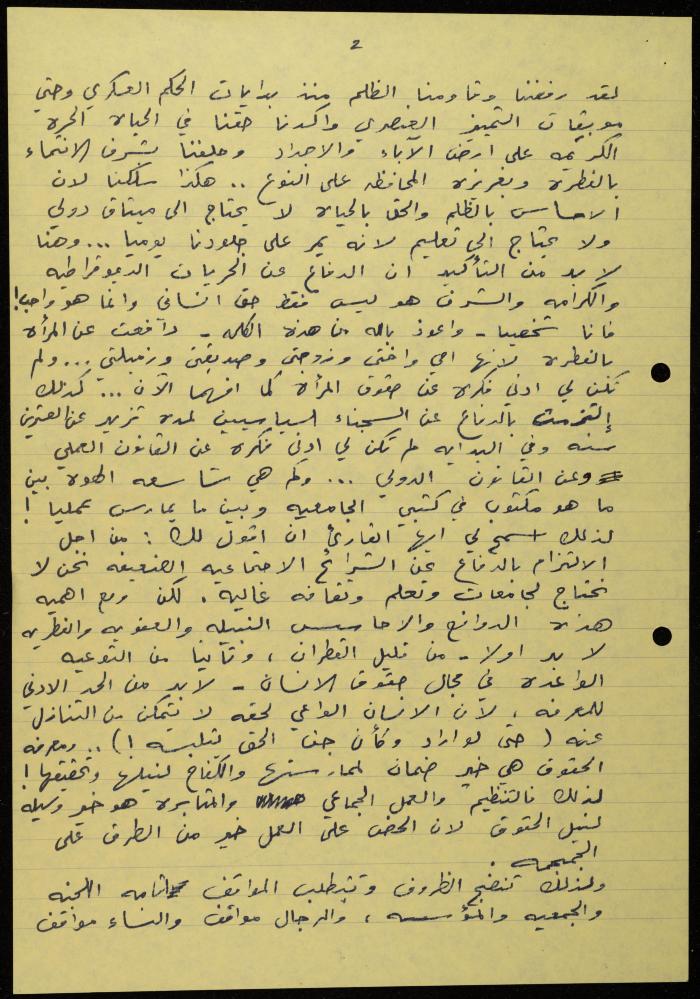 ٢
لقد رفضنا وقاومنا الظلم منذ بدايات الحكم العسكري وحتى
موبقات التمييز العنصري واكدنا حقنا في الحياة الحرة
الكريمه على ارض الآباء والاجداد وحلفنا بشرف الانتماء
بالفطرة وبغريزة المحافظه على النوع .. هكذا سلكنا لان
الاحساس بالظلم والحق بالحياه لا يحتاج الى ميثاق دولي
ولا يحتاج الى تعليم لانه يمر على جلودنا يوميا ... وهنا
لا بد من التأكيد ان الدفاع عن الحريات الديموقراطيه
والكرامه والشرف هو ليس فقط حق انساني وانما هو واجب!
فانا شخصيا - واعوذ بالله من هذه الكلمه - دافعت عن المرأة
بالفطره لانها امي واختي وزوجتي وصديقتي وزميلتي ... ولم
تكن لي ادنى فكرة عن حقوق المرأة كما افهمها الآن ... كذلك
إلتزمت بالدفاع عن السجناء السياسيين لمدة تزيد عن العشرين
سنه وفي البدايه لم تكن لي ادنى فكرة عن القانون العملي
وعن القانون الدولي ... وكم هي شاسعه الهوة بين
ما هو مكتوب في كتبي الجامعيه وبين ما يمارس عمليا !
لذلك اسمح لي ايها القارئ ان اقول لك : من اجل
الالتزام بالدفاع عن الشرائح الاجتماعيه الضعيفه نحن لا
نحتاج لجامعات وتعلم وثقافه عاليه . لكن ومع اهمية
هذه الدوافع والاحاسيس النبيله والعفويه والفطريه
لا بد اولا - من قليل القطران ، وثانيا من التوعيه
الواعدة في مجال حقوق الانسان - لا بد من الحد الادنى
للمعرفه ، لأن الانسان الواعي لحقه لا يتمكن من التنازل
عنه ( حتى لو اراد وكأن جن الحق يتلبسه ! ) .. ومعرفه
الحقوق هي خير ضمان لممارستها والكفاح لنيلها وتحقيقها !
لذلك فالتنظيم والعمل الجماعي والمثابرة هو خير وسيله
لنيل الحقوق لان الحض على العمل خير من الطرق على
الجمجمه .
ولذلك تنضج الظروف وتتطلب المواقف اقامه اللجنه
والجمعيه والمؤسسه ، والرجال مواقف والنساء مواقف